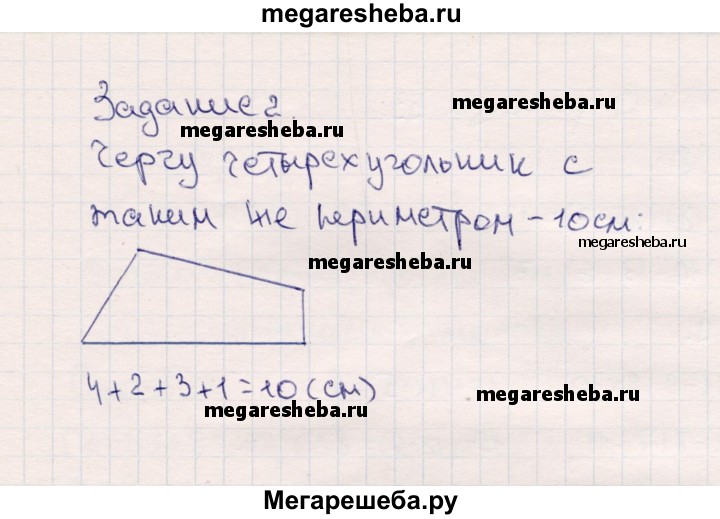 megaresheba.ru
Задание 2.
megaresheba.ru
megaresheba.ru
Черчу четырехугольник с
таким же периметром - 10 см:
megaresheba.ru
megaresheba.ru
4+2+3+1=10 (см)
megaresheba.ru
megaresheba.ru
Мегарешеба.ру